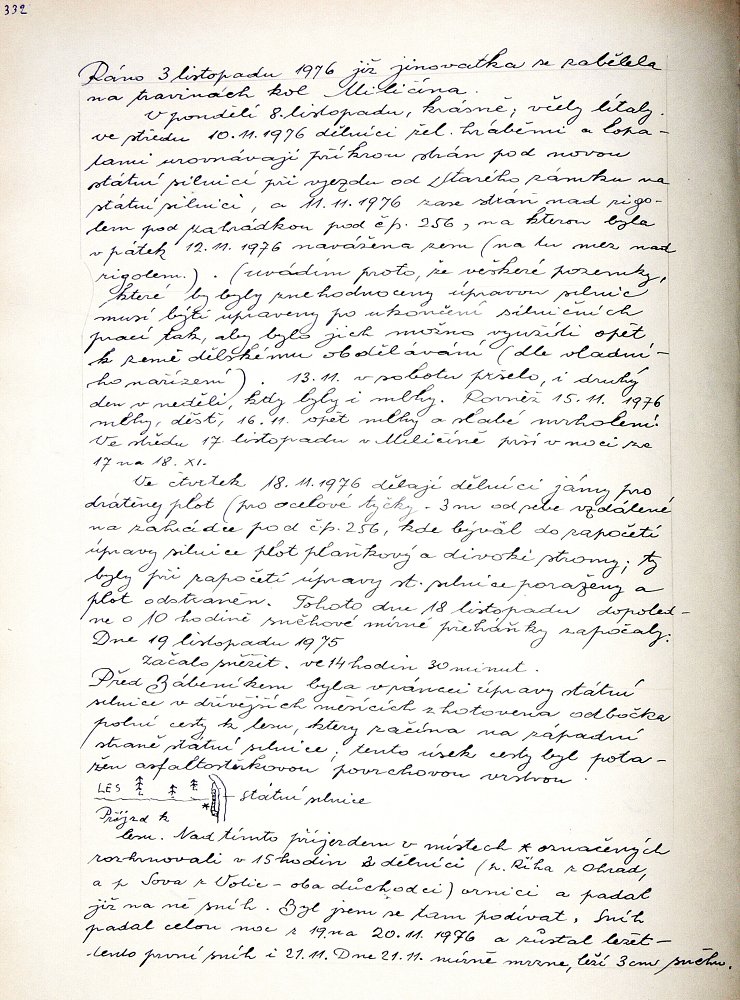 332
Ráno 3 listopadu 1976 již jinovatka se zabělela
na travinách kol Miličína.
V pondělí 8. listopadu, krásně; včely lítaly.
ve středu 10.11.1976 dělníci žel. hráběmi a lopa-
tami urovnávají příkrou stráň pod novou
státní silnicí při vjezdu od Starého zámku na
státní silnici, a 11.11.1976 zase stráň nad rigo-
lem pod zahrádkou pod čp. 256, na kterou byla
v pátek 12.11.1976 navážena zem (na tu mez nad
rigolem.). (uvádím proto, že veškeré pozemky,
které by byly znehodnoceny úpravou silnic
musí býti upraveny po ukončení silničních
prací tak, aby bylo jich možno využíti opět
k zemědělskému obdělávání (dle vladní-
ho nařízení). 13.11. v sobotu pršelo, i druhý
den v neděli, kdy byly i mlhy. Rovněž 15.11. 1976
mlhy, déšť, 16.11. opět mlhy a slabé mrholení.
Ve středu 17 listopadu v Miličíně prší v noci ze
17 na 18. XI.
Ve čtvrtek 18.11.1976 dělají dělníci jámy pro
drátěný plot (pro ocelové tyčky - 3 m od sebe vzdálené
na zahrádce pod čp. 256, kde býval do započetí
úpravy silnice plot plaňkový a divoké stromy; ty
byly při započetí úpravy st. silnice poraženy a
plot odstraněn. Tohoto dne 18 listopadu dopoled-
ne o 10 hodině sněhové mírné přeháňky započaly.
Dne 19 listopadu 1975
začalo sněžit. ve 14 hodin 30 minut.
Před Zábeníkem byla v rámci úpravy státní
silnice v dřívějších měsících zhotovena odbočka
polní cesty k lesu, který začíná na západní
straně státní silnice; tento úsek cesty byl pota-
žen asfaltostěrkovou povrchovou vrstvou.
LES
státní silnice
Příjezd k
lesu. Nad tímto příjezdem v místech * označených
rozhrnovali v 15 hodin 2 dělníci (p. Říha z Ohrad,
a p Sova z Volic - oba důchodci) ornici a padal
již na ně sníh. Byl jsem se tam podívat. Sníh
padal celou noc z 19. na 20.11.1976 a zůstal ležet -
tento první sníh i 21.11. Dne 21.11. mírně mrzne, leží 3 cm sněhu.